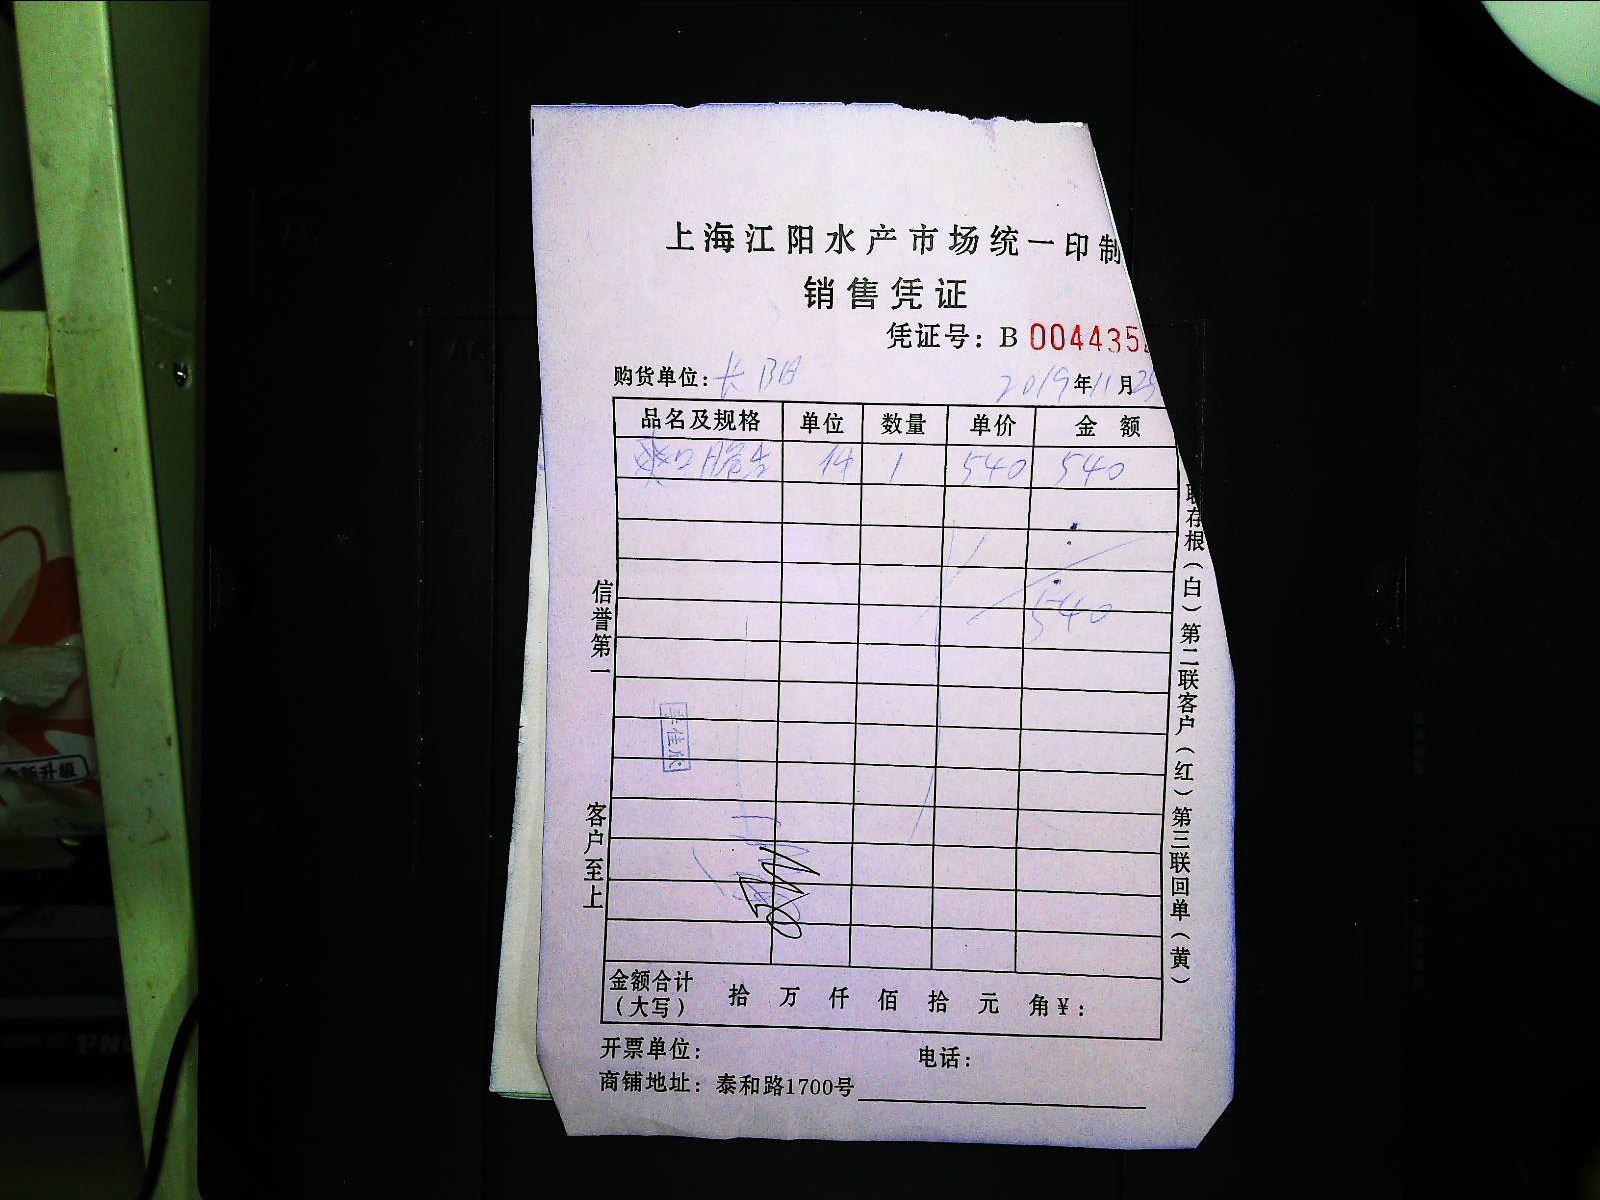 上海江阳水产市场统一印制
销售凭证
凭证号：B 004435
购货单位：长阳 2019年11月25
品名及规格 单位 数量 单价 金额
爽口脆 件 1 540 540
540
信誉第一
客户至上
联存根（白）第二联客户（红）第三联回单（黄）
金额合计（大写） 拾 万 仟 佰 拾 元 角 ¥：
开票单位： 电话：
商铺地址：泰和路1700号
全新升级